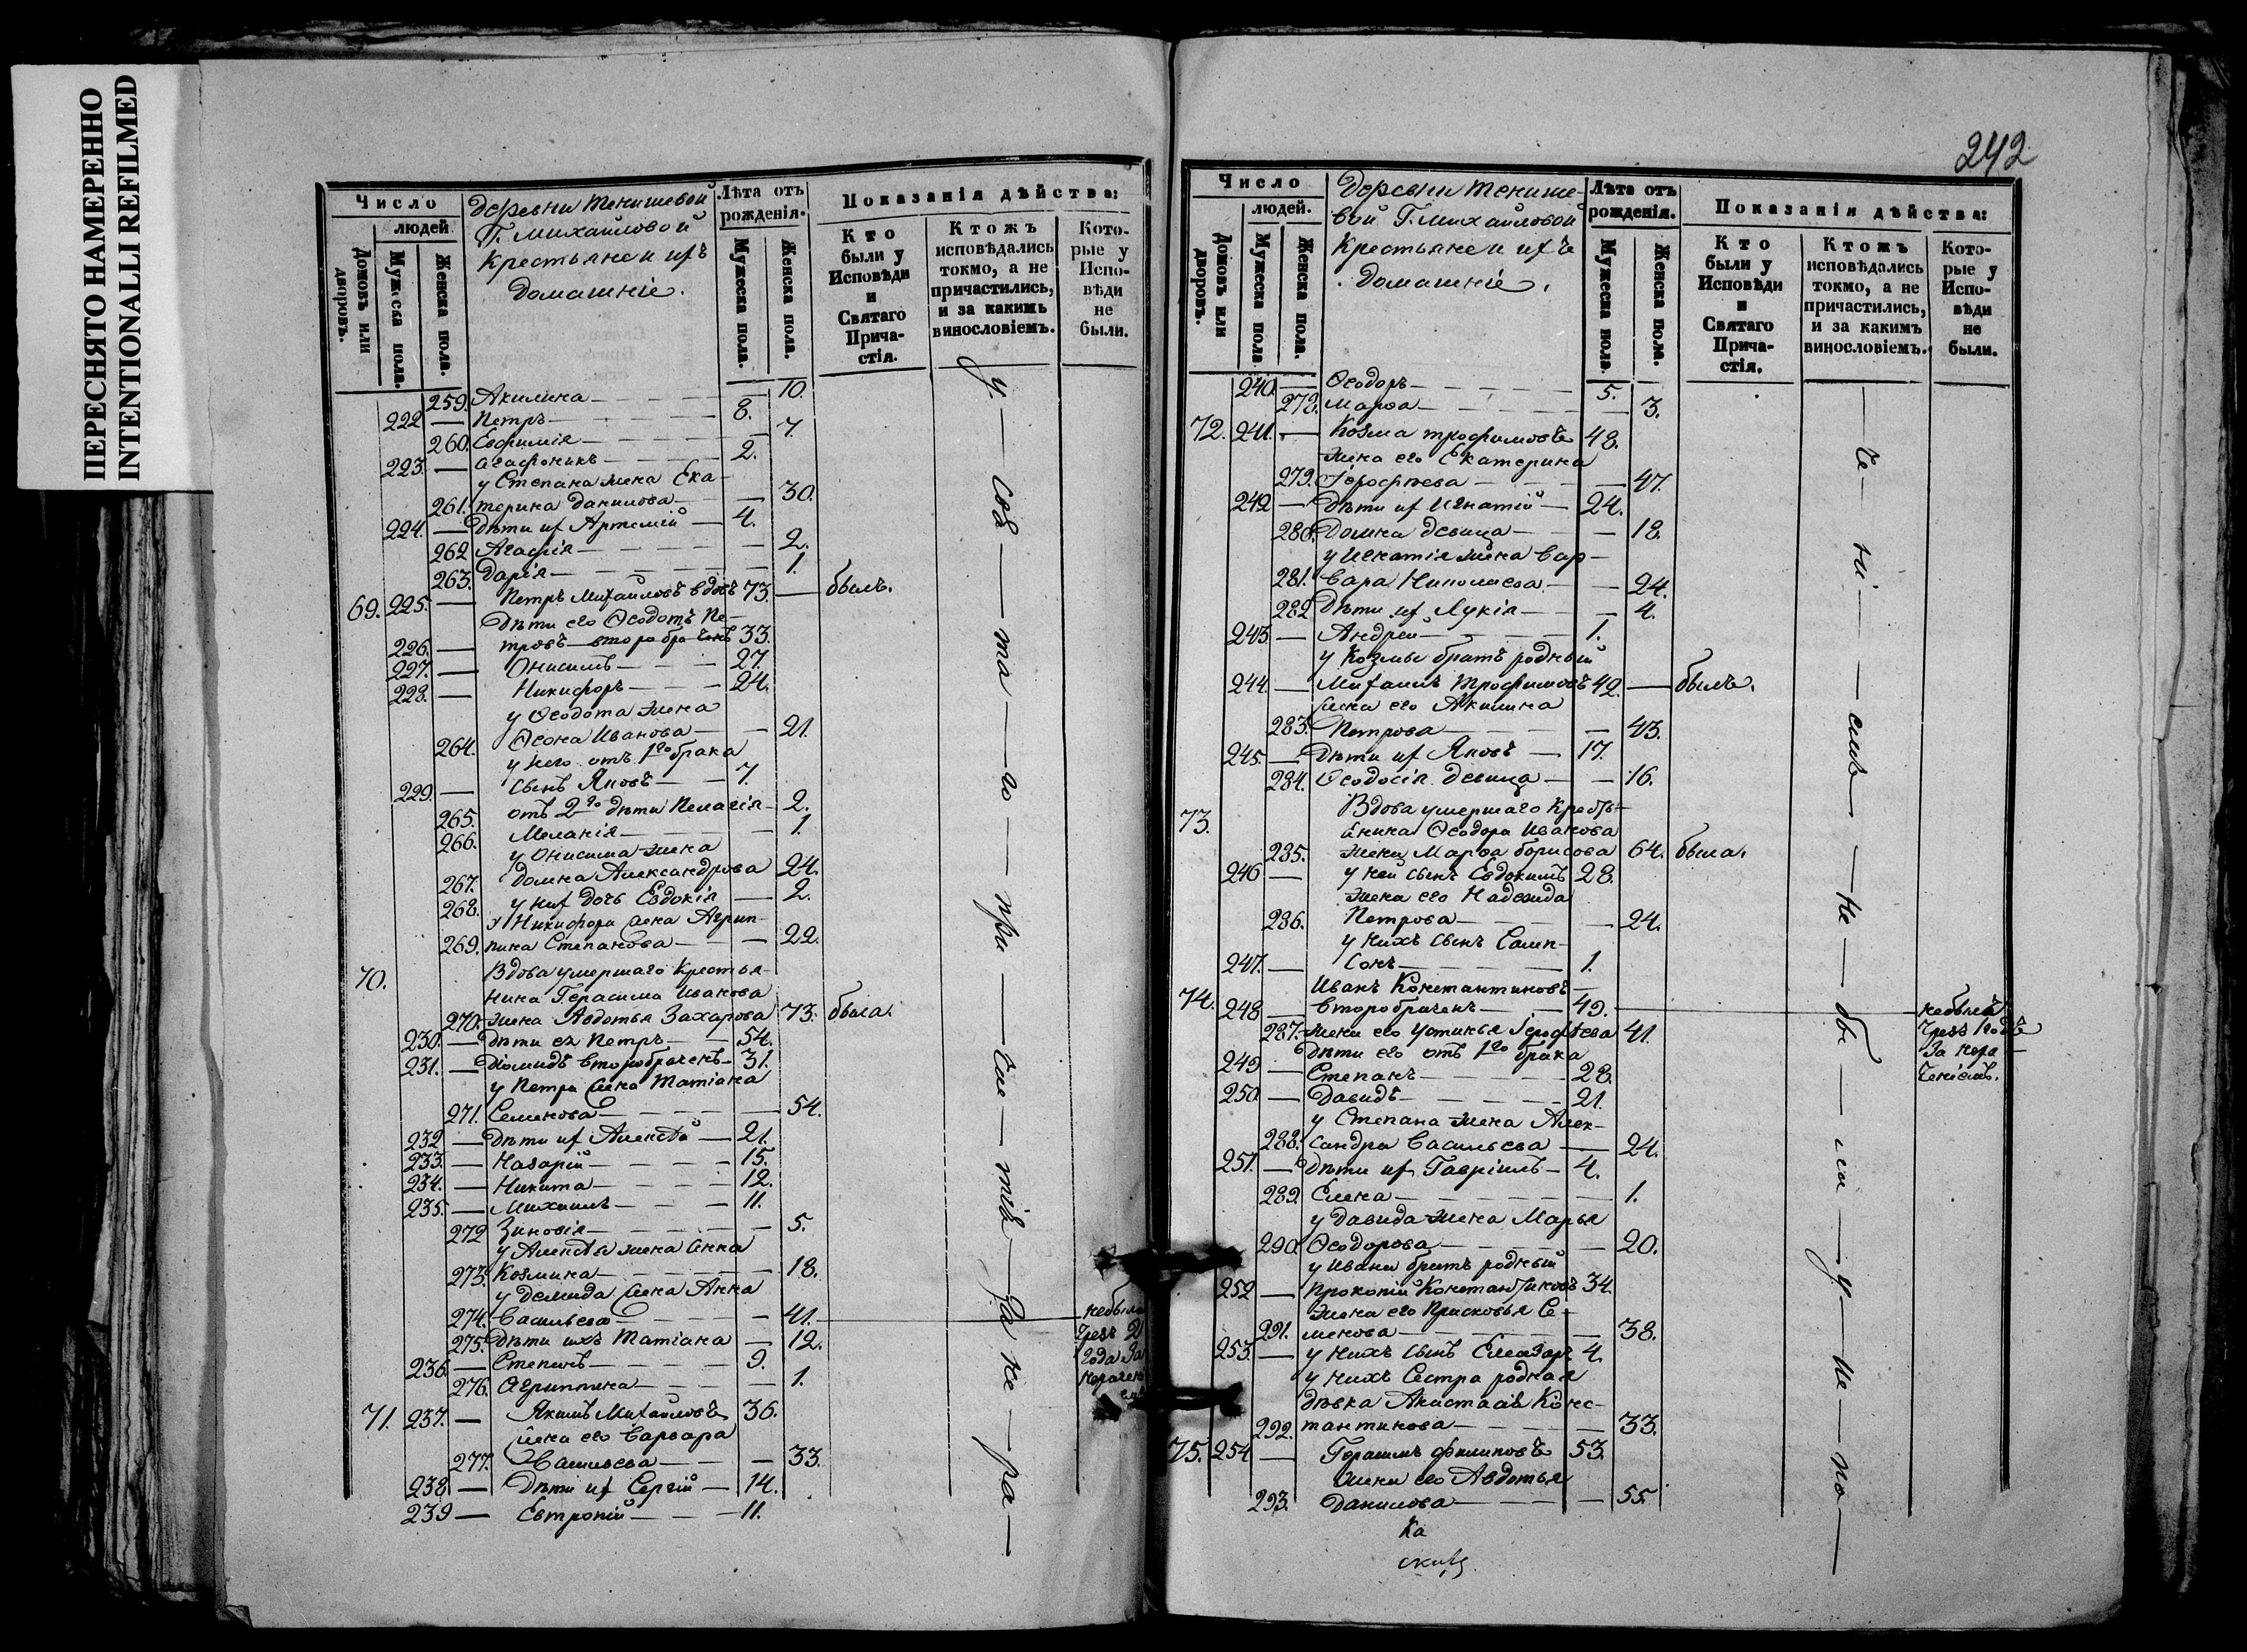 ПЕРЕСНЯТО НАМЕРЕННО
INTENTIONALLI REFILMED
Число
людей
Домовъ или дворовъ.
Мужеска пола.
Женска пола.
Деревни Тенишевой
Г. Михайловой
Крестьяне и ихъ
домашніе.
Лѣта отъ рожденія.
Мужеска пола.
Женска пола.
Показанія дѣйства:
Кто были у Исповѣди и Святаго Причастія.
Ктожъ исповѣдались токмо, а не причастились, и за какимъ винословіемъ.
Которые у Исповѣди не были.
259. Акилина — 10.
222 — Петръ — 8.
260. Евфимія — 7.
223. — Агафоникъ — 2.
у Степана жена Ека-
261. терина Данилова — 30.
224. — Дѣти их Артемій — 4.
262 Агафія — 2.
263. Дарія — 1.
69. 225. — Петръ Михайловъ вдовъ 73. — былъ.
Дѣти его Ѳеодотъ Пе-
226. — тровъ — второбраченъ 33.
227. — Онисимъ — 27.
228. — Никифоръ — 24.
у Ѳеодота жена
264. Ѳеона Иванова — 21.
у него отъ 1го брака
229. — сынъ Яковъ — 7.
265. отъ 2го дѣти Пелагія — 2.
266. Меланія — 1.
у Онисима жена
267. Домна Александрова 24.
268. у них дочь Евдокія — 2.
у Никифора жена Агрип-
269. пина Степанова — 22.
70. Вдова умершаго Крестья-
нина Герасима Иванова
270. жена Авдотья Захарова 73. была.
230. — Дѣти ея Петръ — 54.
231. — Діомидъ второбраченъ — 31.
у Петра жена Татіана
271. Семенова — 54.
232 — Дѣти их Алексѣй — 21.
233. — Назарій — 15.
234. — Никита — 12.
235. — Михаилъ — 11.
272 Зиновія — 5.
у Алексѣя жена Анна
273. Козмина — 18.
у Демида жена Анна
274. Васильева — 41. — небыла
275. Дѣти ихъ Татіана — 12. чрезъ 2
236. — Степанъ — 9. года За
276. Агриппина — 1. нераче
71. 237. — Якимъ Михайловъ 36.
жена его Варвара
277. Васильева — 33.
238 — Дѣти их Сергій — 14.
239 — Евтропій — 11.
у — свя — та — го — при — час — тія — За не — ра —
242
Число
людей.
Домовъ или дворовъ.
Мужеска пола
Женска пола.
Деревни Тенише-
вой Г. Михайловой
Крестьяне и ихъ
домашніе.
Лѣта отъ рожденія.
Мужеска пола
Женска пола.
Показанія дѣйства:
Кто были у Исповѣди и Святаго Причастія.
Ктожъ исповѣдались токмо, а не причастились, и за какимъ винословіемъ.
Которые у Исповѣди не были.
240. — Ѳеодоръ — 5.
278. Марѳа — 3.
72. 241. — Козма Трофимовъ 48.
жена его Екатерина
279. Герофѣева — 47.
242 — Дѣти их Игнатій — 24.
280. Домна девица — 18.
у Игнатія жена Вар-
281. вара Николаева — 24.
282 Дѣти их Лукія — 4.
243. — Андрей — 1.
у Козмы братъ родный
244. — Михаилъ Трофимовъ 42. — былъ.
жена его Акилина
283. Петрова — 43.
245. — Дѣти их Яковъ — 17.
284. Ѳеодосія девица — 16.
73. Вдова умершаго Крестья-
нина Ѳеодора Иванова
285. жена Марѳа Борисова 64. была.
246 — у ней сынъ Евдокимъ 28.
жена его Надежда
286. Петрова — 24.
у нихъ сынъ Самп-
247. — сонъ — 1.
Иванъ Константиновъ —
74. 248 — второбраченъ — 49. — небылъ
287. жена его Устинья Герофѣева 41. чрезъ годъ
Дѣти его отъ 1го брака За нера-
249 — Степанъ — 28. ченіемъ.
250. — Давидъ — 21.
у Степана жена Алек-
288. сандра Васильева — 24.
251. — Дѣти их Гавріилъ — 4.
289. Елена — 1.
у Давида жена Марья
290. Ѳеодорова — 20.
у Ивана братъ родный
252 — Прокопій Константиновъ 34.
жена его Прасковья Се-
291. менова — 38.
253. — у нихъ сынъ Елеазаръ 4.
у нихъ Сестра родная
дѣвка Анастасія Конс-
292. тантинова — 33.
75. 254 — Герасимъ Филиповъ 53.
жена его Авдотья
293. Данилова — 55.
че — ні — емъ — Не — бы — ли — у — Ис — по —